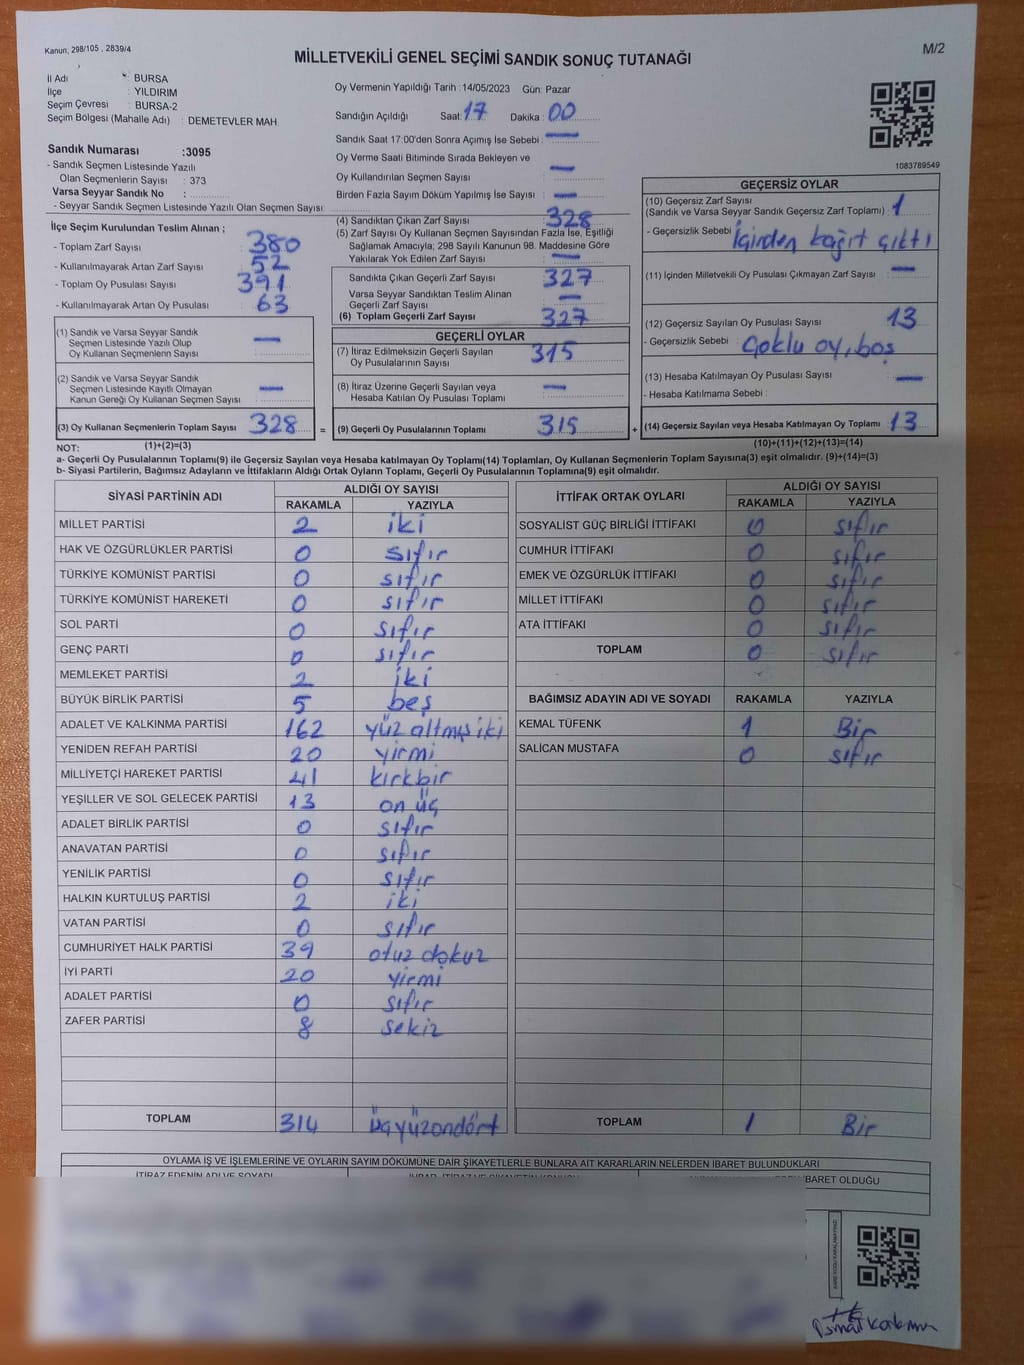 Kanun; 298/105 , 2839/4
MİLLETVEKİLİ GENEL SEÇİMİ SANDIK SONUÇ TUTANAĞI
M/2
İl Adı : BURSA
İlçe : YILDIRIM
Seçim Çevresi : BURSA-2
Seçim Bölgesi (Mahalle Adı) : DEMETEVLER MAH.
Sandık Numarası :3095
- Sandık Seçmen Listesinde Yazılı
Olan Seçmenlerin Sayısı : 373
Varsa Seyyar Sandık No :
- Seyyar Sandık Seçmen Listesinde Yazılı Olan Seçmen Sayısı:
Oy Vermenin Yapıldığı Tarih : 14/05/2023 Gün: Pazar
Sandığın Açıldığı Saat: 17 Dakika : 00
Sandık Saat 17:00'den Sonra Açımış İse Sebebi : —
Oy Verme Saati Bitiminde Sırada Bekleyen ve
Oy Kullandırılan Seçmen Sayısı : —
Birden Fazla Sayım Döküm Yapılmış İse Sayısı : —
1083789549
İlçe Seçim Kurulundan Teslim Alınan ;
- Toplam Zarf Sayısı : 380
- Kullanılmayarak Artan Zarf Sayısı : 52
- Toplam Oy Pusulası Sayısı : 391
- Kullanılmayarak Artan Oy Pusulası : 63
(1) Sandık ve Varsa Seyyar Sandık
Seçmen Listesinde Yazılı Olup
Oy Kullanan Seçmenlerin Sayısı : —
(2) Sandık ve Varsa Seyyar Sandık
Seçmen Listesinde Kayıtlı Olmayan
Kanun Gereği Oy Kullanan Seçmen Sayısı : —
(3) Oy Kullanan Seçmenlerin Toplam Sayısı : 328 =
(1)+(2)=(3)
(4) Sandıktan Çıkan Zarf Sayısı : 328
(5) Zarf Sayısı Oy Kullanan Seçmen Sayısından Fazla İse, Eşitliği
Sağlamak Amacıyla; 298 Sayılı Kanunun 98. Maddesine Göre
Yakılarak Yok Edilen Zarf Sayısı : —
Sandıkta Çıkan Geçerli Zarf Sayısı : 327
Varsa Seyyar Sandıktan Teslim Alınan
Geçerli Zarf Sayısı : —
(6) Toplam Geçerli Zarf Sayısı : 327
GEÇERLİ OYLAR
(7) İtiraz Edilmeksizin Geçerli Sayılan
Oy Pusulalarının Sayısı : 315
(8) İtiraz Üzerine Geçerli Sayılan veya
Hesaba Katılan Oy Pusulası Toplamı : —
(9) Geçerli Oy Pusulalarının Toplamı : 315 +
GEÇERSİZ OYLAR
(10) Geçersiz Zarf Sayısı
(Sandık ve Varsa Seyyar Sandık Geçersiz Zarf Toplamı) : 1
- Geçersizlik Sebebi : İçinden kağıt çıktı
(11) İçinden Milletvekili Oy Pusulası Çıkmayan Zarf Sayısı : —
(12) Geçersiz Sayılan Oy Pusulası Sayısı : 13
- Geçersizlik Sebebi : Çoklu oy, boş
(13) Hesaba Katılmayan Oy Pusulası Sayısı : —
- Hesaba Katılmama Sebebi :
(14) Geçersiz Sayılan veya Hesaba Katılmayan Oy Toplamı : 13
(10)+(11)+(12)+(13)=(14)
NOT:
a- Geçerli Oy Pusulalarının Toplamı(9) ile Geçersiz Sayılan veya Hesaba katılmayan Oy Toplamı(14) Toplamları, Oy Kullanan Seçmenlerin Toplam Sayısına(3) eşit olmalıdır. (9)+(14)=(3)
b- Siyasi Partilerin, Bağımsız Adayların ve İttifakların Aldığı Ortak Oyların Toplamı, Geçerli Oy Pusulalarının Toplamına(9) eşit olmalıdır.
SİYASİ PARTİNİN ADI ALDIĞI OY SAYISI
RAKAMLA YAZIYLA
MİLLET PARTİSİ 2 iki
HAK VE ÖZGÜRLÜKLER PARTİSİ 0 sıfır
TÜRKİYE KOMÜNİST PARTİSİ 0 sıfır
TÜRKİYE KOMÜNİST HAREKETİ 0 sıfır
SOL PARTİ 0 sıfır
GENÇ PARTİ 0 sıfır
MEMLEKET PARTİSİ 2 iki
BÜYÜK BİRLİK PARTİSİ 5 beş
ADALET VE KALKINMA PARTİSİ 162 yüz altmış iki
YENİDEN REFAH PARTİSİ 20 yirmi
MİLLİYETÇİ HAREKET PARTİSİ 41 kırkbir
YEŞİLLER VE SOL GELECEK PARTİSİ 13 on üç
ADALET BİRLİK PARTİSİ 0 sıfır
ANAVATAN PARTİSİ 0 sıfır
YENİLİK PARTİSİ 0 sıfır
HALKIN KURTULUŞ PARTİSİ 2 iki
VATAN PARTİSİ 0 sıfır
CUMHURİYET HALK PARTİSİ 39 otuz dokuz
İYİ PARTİ 20 yirmi
ADALET PARTİSİ 0 sıfır
ZAFER PARTİSİ 8 sekiz
TOPLAM 314 üçyüzondört
İTTİFAK ORTAK OYLARI ALDIĞI OY SAYISI
RAKAMLA YAZIYLA
SOSYALİST GÜÇ BİRLİĞİ İTTİFAKI 0 sıfır
CUMHUR İTTİFAKI 0 sıfır
EMEK VE ÖZGÜRLÜK İTTİFAKI 0 sıfır
MİLLET İTTİFAKI 0 sıfır
ATA İTTİFAKI 0 sıfır
TOPLAM 0 sıfır
BAĞIMSIZ ADAYIN ADI VE SOYADI RAKAMLA YAZIYLA
KEMAL TÜFENK 1 Bir
SALİCAN MUSTAFA 0 sıfır
TOPLAM 1 Bir
OYLAMA İŞ VE İŞLEMLERİNE VE OYLARIN SAYIM DÖKÜMÜNE DAİR ŞİKAYETLERLE BUNLARA AİT KARARLARIN NELERDEN İBARET BULUNDUKLARI
İTİRAZ EDENİN ADI VE SOYADI
İBARET OLDUĞU